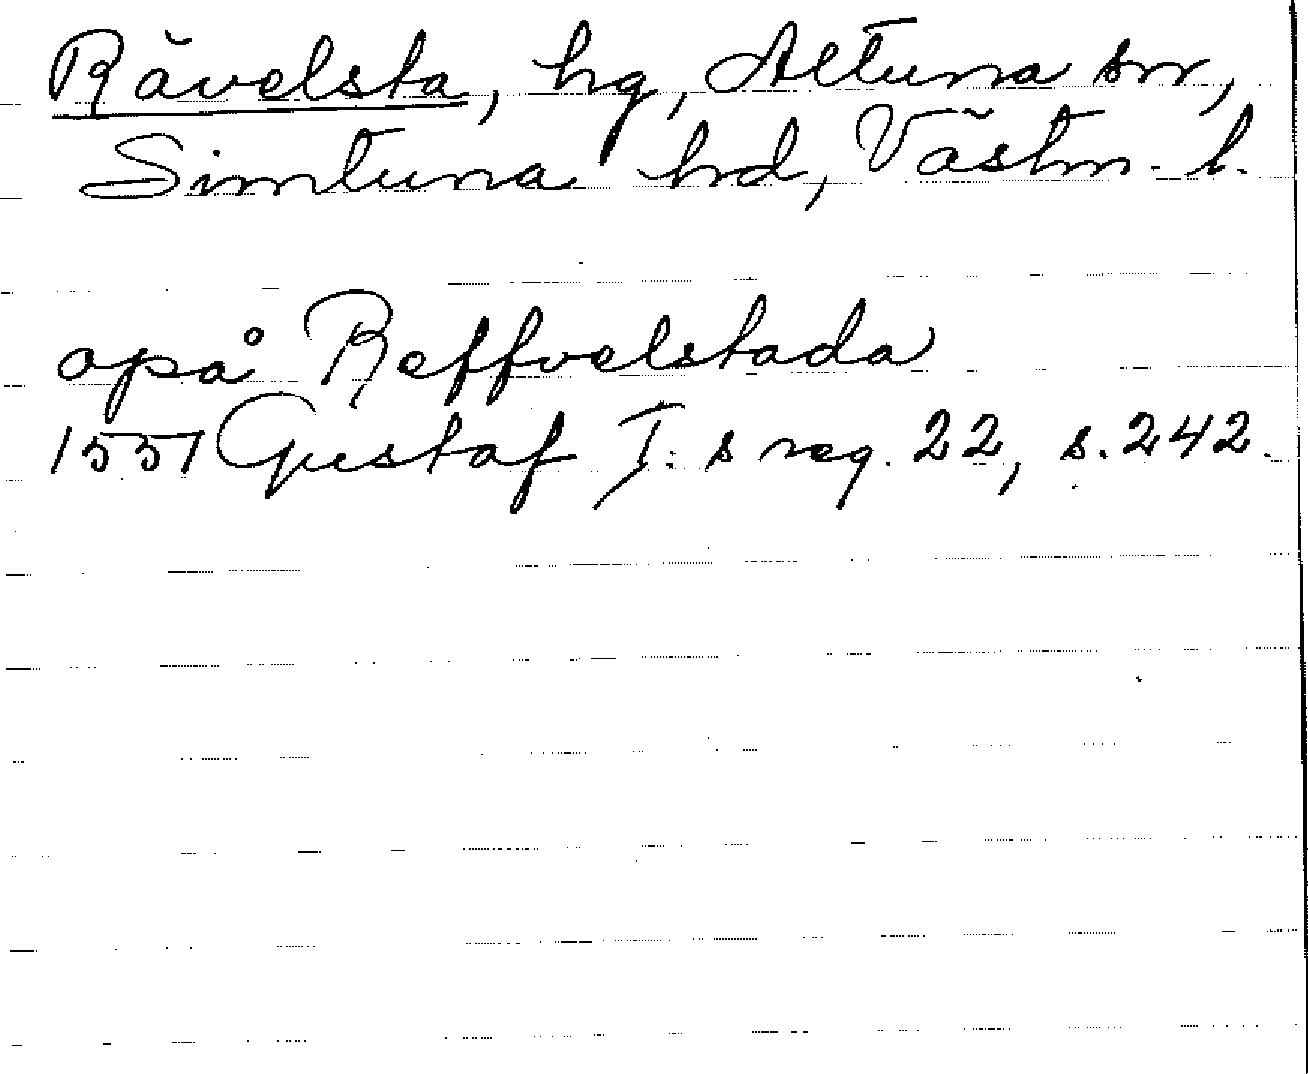 Rävelsta, hg, Altuna sn,
Simtuna hd, Västm. l.
opå Reffvelstada
1551 Gustaf I: s reg. 22, s. 242.